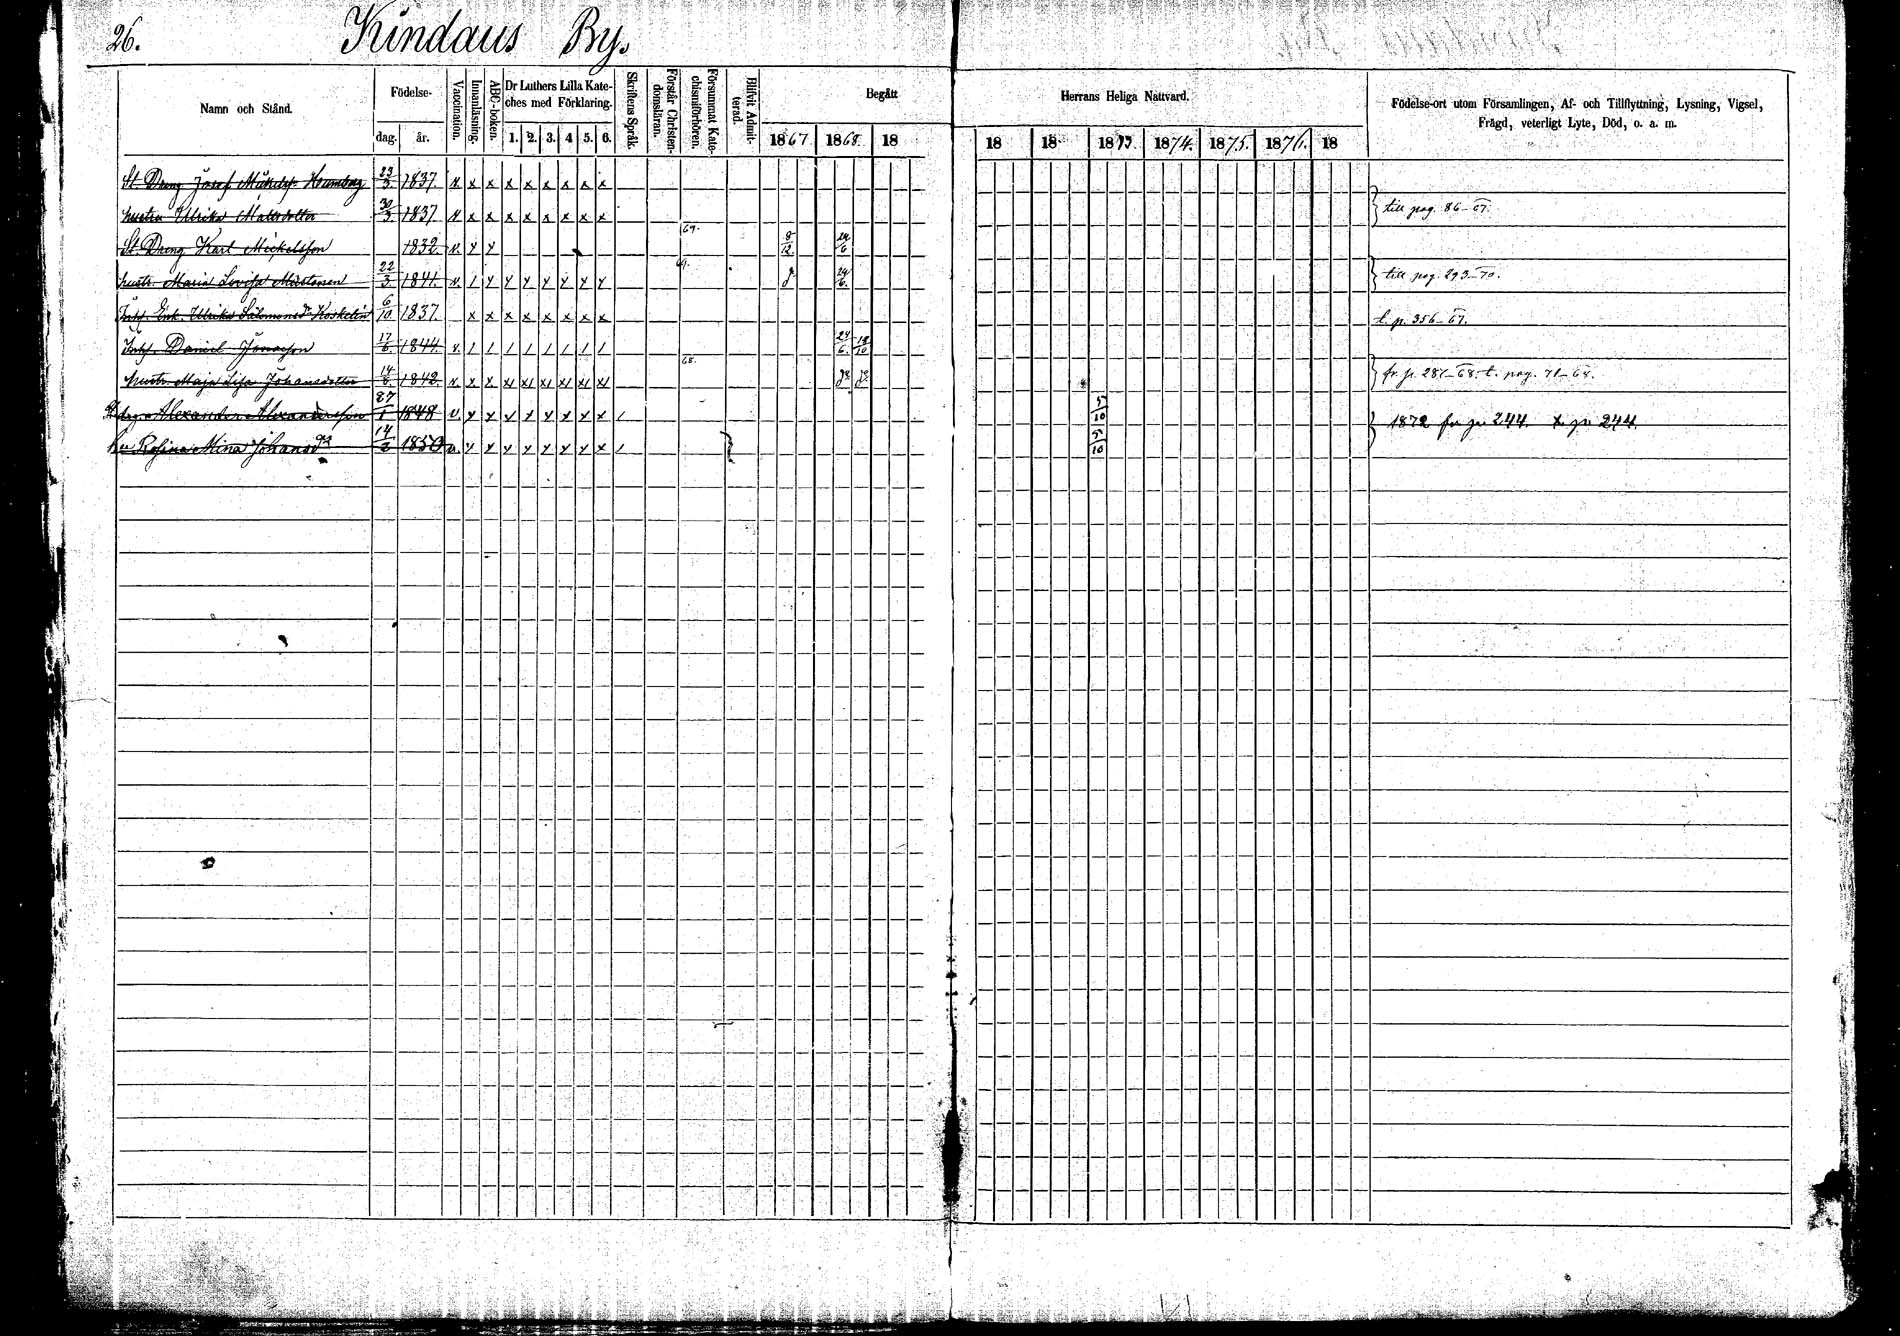 26. Kindaus By.
Namn och Stånd. Födelse- dag. år. Vaccination. Innanläsning. ABC-boken. Dr Luthers Lilla Kate-ches med Förklaring. 1. 2. 3. 4 5. 6. Skriftens Språk Förstår Christen-domsläran. Försummat Kate-chismiförhören. Blifvit Admit-terad. Begått 1867 1868 18
Herrans Heliga Nattvard. 18 18 1873. 1874. 1875. 1876. 18 Födelse-ort utom Församlingen, Af- och Tillflyttning, Lysning, Vigsel,
Frägd, veterligt Lyte, Död, o. a. m.
St. Dreng Josef 23/3 1837. v. x x x x x x x x
hustru Ulrika Matsdotter 30/3 1837 v x x x x x x x x till pag. 86-67.
St. Dreng Karl Mickelsson 1832. v. 69. 8/12 24/6
hustr. Maria Lovisa 22/3 1841. v. 69. 24/6. till pag. 293-70.
Enk. Ulrika Salomonsdr 6/10 1837. x x x x x x x x t. p. 356-67.
Daniel 17/6. 1844. v. 24/6. 18/10
hustr. Maja Lisa Johansdotter 14/ 1842. v. x x 68. fr. p. 281-68. t. pag. 71-68.
Alexander Alexandersson 27/1 1848 v. 5/10 1872 fr p. 244. t. p. 244.
hu Rosina Mina Johansdr 14/2 1850 v. 5/10